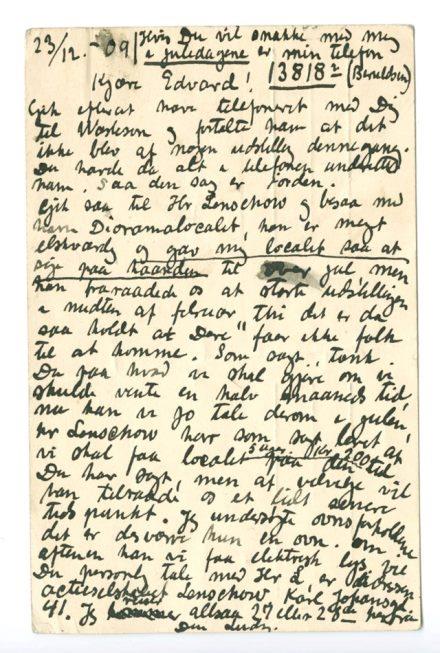 23/12. - 09 Hvis Du vil snakke med mig
i juledagene er min telefon
Kjære Edvard! 13818² (Berntsen)
Gik efterat have telefoneret med Dig
til og fortalte ham at det
ikke blev af nogen udstilling dennegang.
Du havde da alt i telefonen underrettet
ham. Saa den sag er i orden.
Gik saa til Hr Lenschow og besaa med
ham Dioramalocalet, han er meget
elskværdig og gav mig localet saa at
sige paa haanden til over jul men
han fraraadede os at starte udstillingen
i midten af februar thi det er da
saa koldt at Dere" faar ikke folk
til at komme. Som sagt, tænk
Du paa hvad vi skal gjøre om vi
skulde vente en halv maaneds tid,
nu kan vi jo tale derom i julen,
Hr Lenschow har som sagt lovet at
vi skal faa localet paa den tid
Du har sagt, men at velvilje vil
han tilraade os et lidt senere
tidspunkt. Jeg undersøgte ovnsforholdene
det er desværre kun en ovn. Om
aftenen kan vi faa elektrisk lys
Du personlig tale med Hr L, er
actieselskabet Lenschow Karl Johansgt
41. Jeg reiser altsaa 27 eller 28de herfra
Din Ludv.